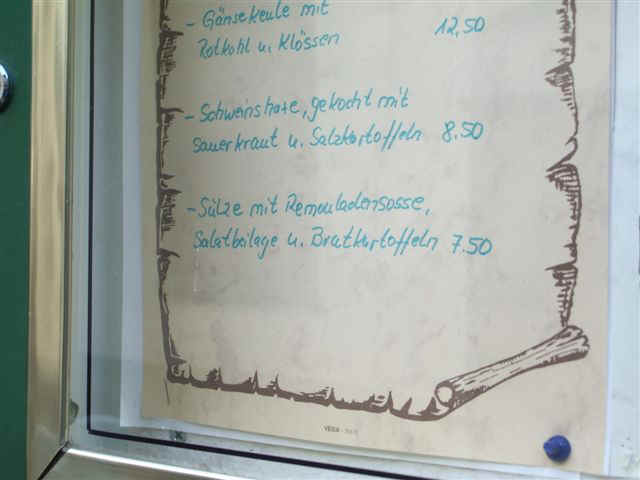 - Gänsekeule mit
Rotkohl u. Klössen 12,50
- Schweinshaxe, gekocht mit
Sauerkraut u. Salzkartoffeln 8.50
- Sülze mit Remouladensosse,
Salatbeilage u. Bratkartoffeln 7.50